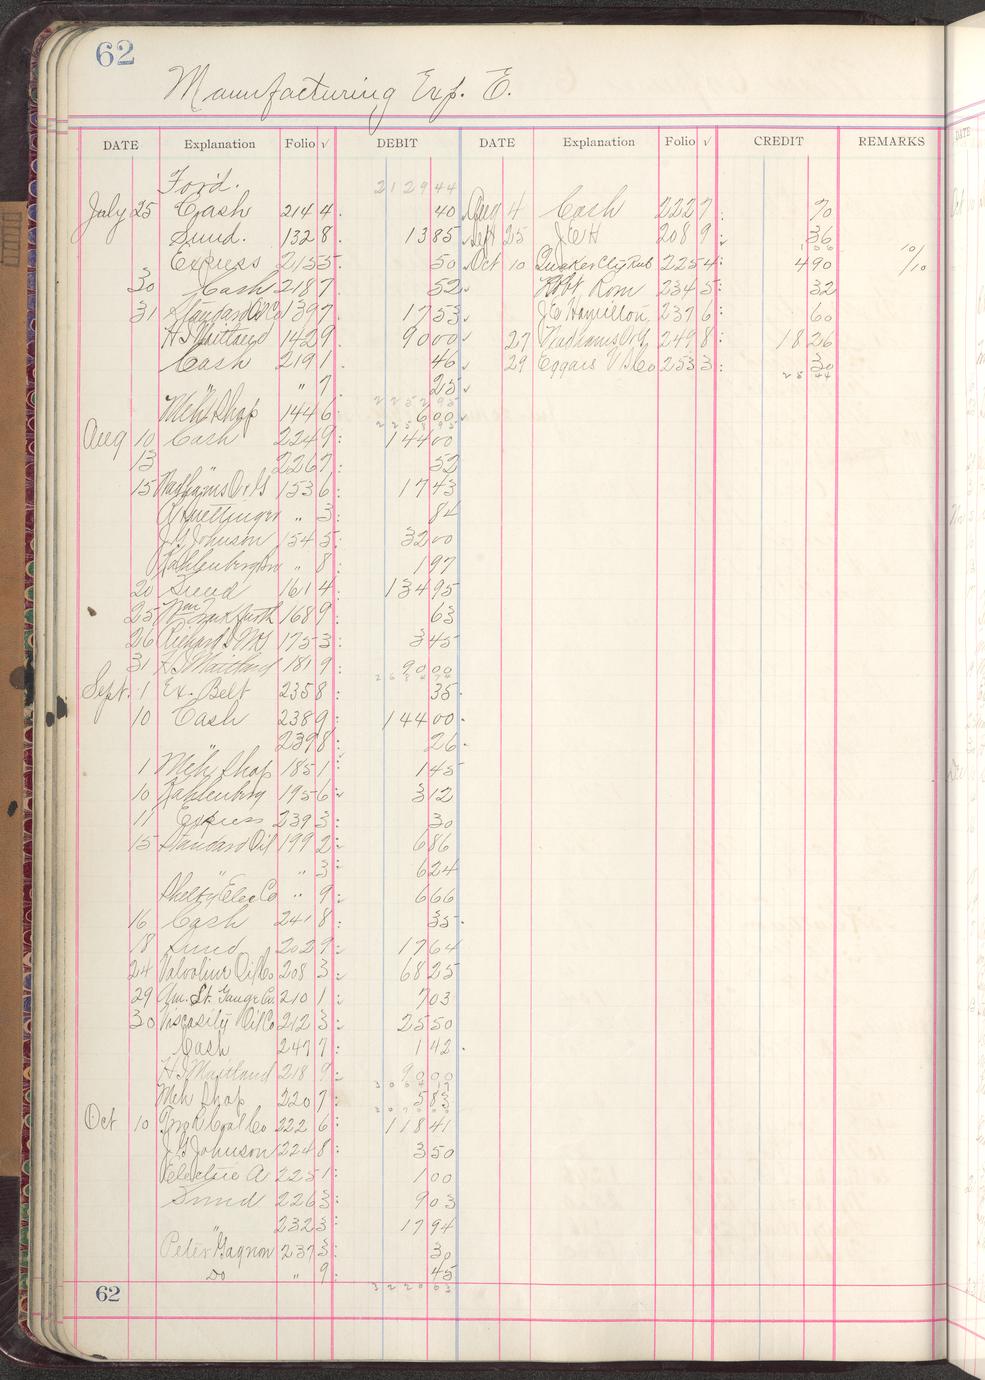 62
Manufacturing Exp. E.
DATE Explanation Folio √ DEBIT DATE Explanation Folio √ CREDIT REMARKS
Ford. 2129 44
July 25 Cash 214 4 40 Aug 4 Cash 222 7 70
Sund. 132 8 13 85 Sept 25 J.E.H 208 9 36
Express 215 5 50 Oct 10 Quaker City Rub 225 4 4 90
30 Cash 218 7 52 Robt Rom 234 5 32
31 Standard Oil Co 139 7 17 53 J.C. Hamilton 237 6 60
H.S. Maitland 142 9 90 00 27 Wadhams O&G 249 8 18 26
Cash 219 1 46 29 Eggers V & Co 253 3 30
" " 7 25
Meh Shop 144 6 6 00
Aug 10 Cash 224 9 144 00
13 " 226 7 52
15 Wadhams O & G 153 6 17 43
" 3 84
J.G. Johnson 154 5 32 00
Kahlenberg Bro " 8 1 97
20 Sund 161 4 134 95
25 Wm Frankfurth 168 9 63
26 175 3 3 45
31 H.S. Maitland 181 9 90 00
Sept. 1 Ex. Belt 235 8 35
10 Cash 238 9 144 00
" 239 8 26
1 Meh Shop 185 1 1 45
10 Kahlenberg 195 6 3 12
11 Express 239 3 30
15 Standard Oil 199 2 6 86
" " 3 6 24
Elec Co " 9 6 66
16 Cash 241 8 35
18 Sund 202 9 17 64
24 Valvoline Oil Co 208 3 68 25
29 Am. St. Gauge Co. 210 1 7 03
30 Viscosity Oil Co 212 3 25 50
Cash 247 7 1 42
H.S. Maitland 218 9 90 00
Meh Shop 220 7 5 83
Oct 10 Coal Co 222 6 118 41
J.G. Johnson 224 8 3 50
Electric A 225 1 1 00
Sund 226 3 9 03
" 232 3 17 94
Peter Gagnon 237 3 30
Do " 9 45
3220 63
62